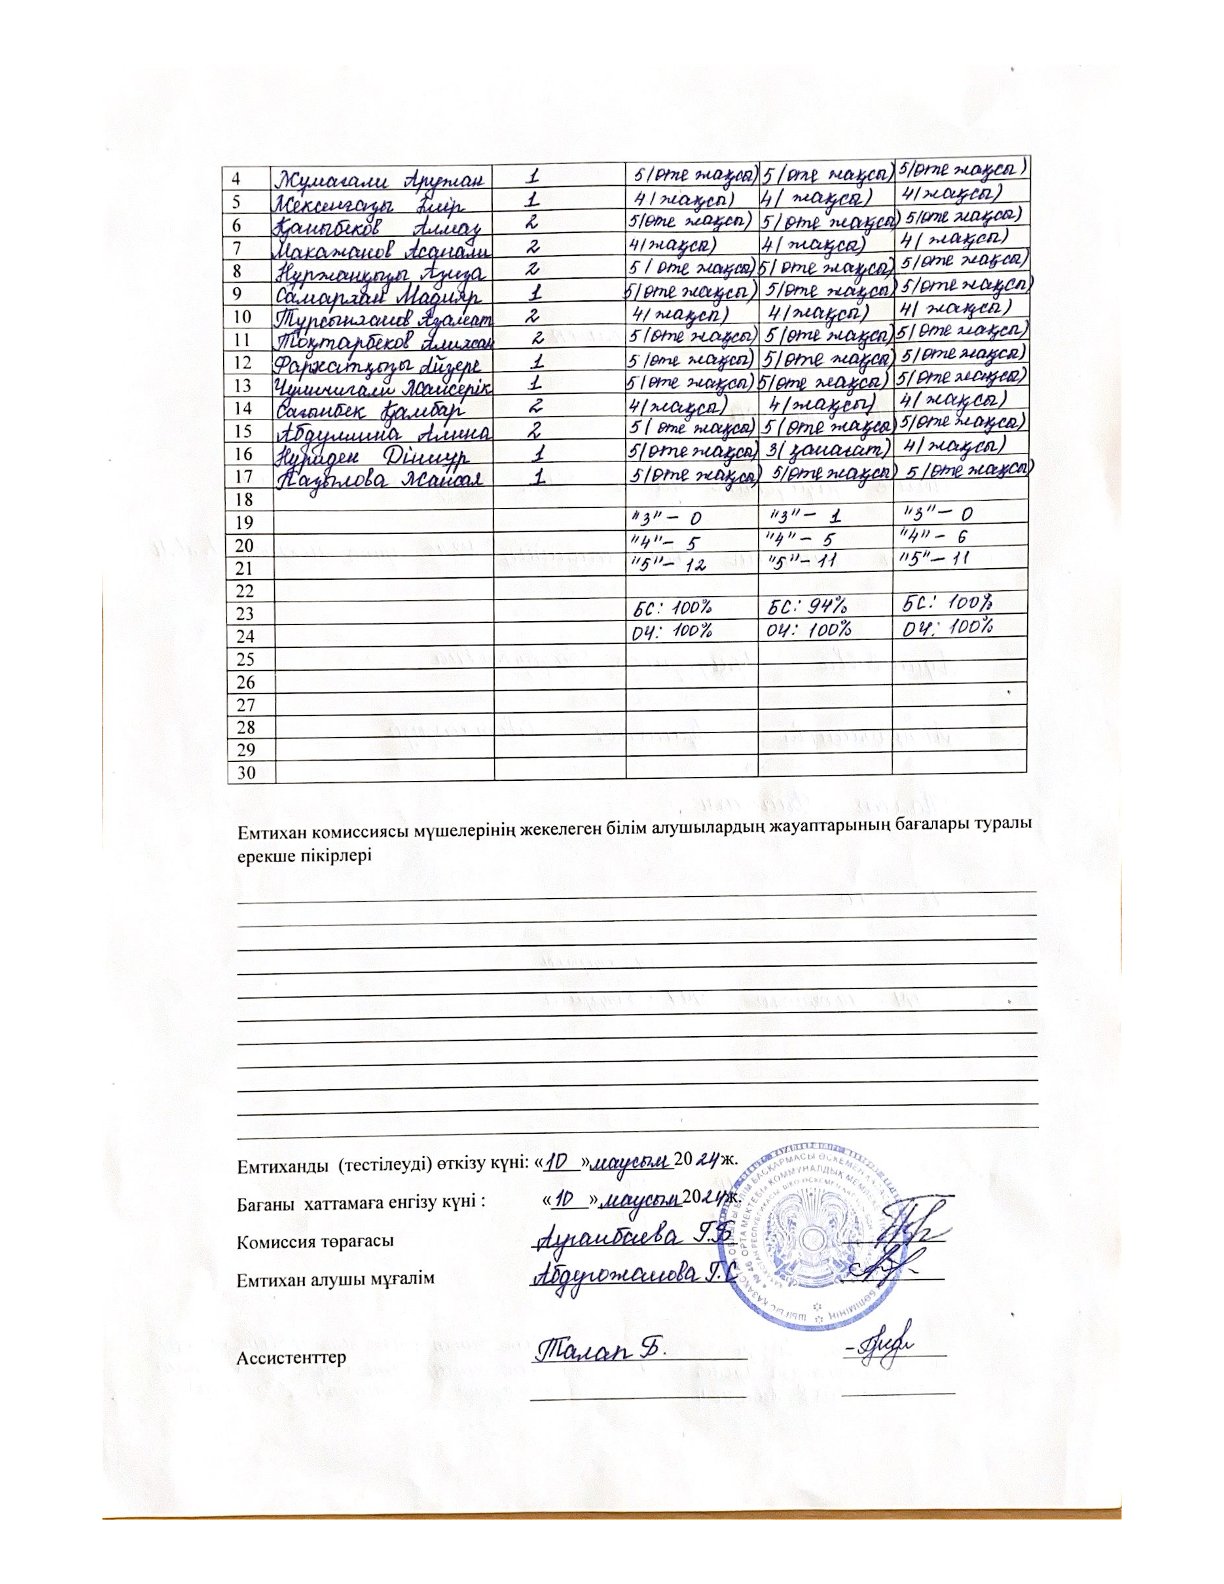 4 Жумагали Аружан 1 5/өте жақсы) 5/өте жақсы) 5/өте жақсы)
5 Мексенгазы Еңлір 1 4/жақсы) 4/жақсы) 4/жақсы)
6 Қаныбеков Алмаз 2 5/өте жақсы) 5/өте жақсы) 5/өте жақсы)
7 Макажанов Асанали 2 4/жақсы) 4/жақсы) 4/жақсы)
8 Нұржанқызы Азиза 2 5/өте жақсы) 5/өте жақсы) 5/өте жақсы)
9 Самархан Мадияр 1 5/өте жақсы) 5/өте жақсы) 5/өте жақсы)
10 Турсынханов Азамат 2 4/жақсы) 4/жақсы) 4/жақсы)
11 Тоқтарбеков Алихан 2 5/өте жақсы) 5/өте жақсы) 5/өте жақсы)
12 Фархатқызы Айзере 1 5/өте жақсы) 5/өте жақсы) 5/өте жақсы)
13 Жансерік 1 5/өте жақсы) 5/өте жақсы) 5/өте жақсы)
14 Сағынбек Қамбар 2 4/жақсы) 4/жақсы) 4/жақсы)
15 Абдуллина Алина 2 5/өте жақсы) 5/өте жақсы) 5/өте жақсы)
16 Нұрәден Дінмұр 1 5/өте жақсы) 3/қанағат) 4/жақсы)
17 Назылова Жансая 1 5/өте жақсы) 5/өте жақсы) 5/өте жақсы)
18
19 "3" – 0 "3" – 1 "3" – 0
20 "4" – 5 "4" – 5 "4" – 6
21 "5" – 12 "5" – 11 "5" – 11
22
23 БС: 100% БС: 94% БС: 100%
24 ОҮ: 100% ОҮ: 100% ОҮ: 100%
25
26
27
28
29
30
Емтихан комиссиясы мүшелерінің жекелеген білім алушылардың жауаптарының бағалары туралы
ерекше пікірлері
Емтиханды (тестілеуді) өткізу күні: «10» маусым 2024 ж.
Бағаны хаттамаға енгізу күні : «10» маусым 2024 ж.
Комиссия төрағасы Ауганбаева Г.Б
Емтихан алушы мұғалім Абдугожанова Г.С
Ассистенттер Талап Б.